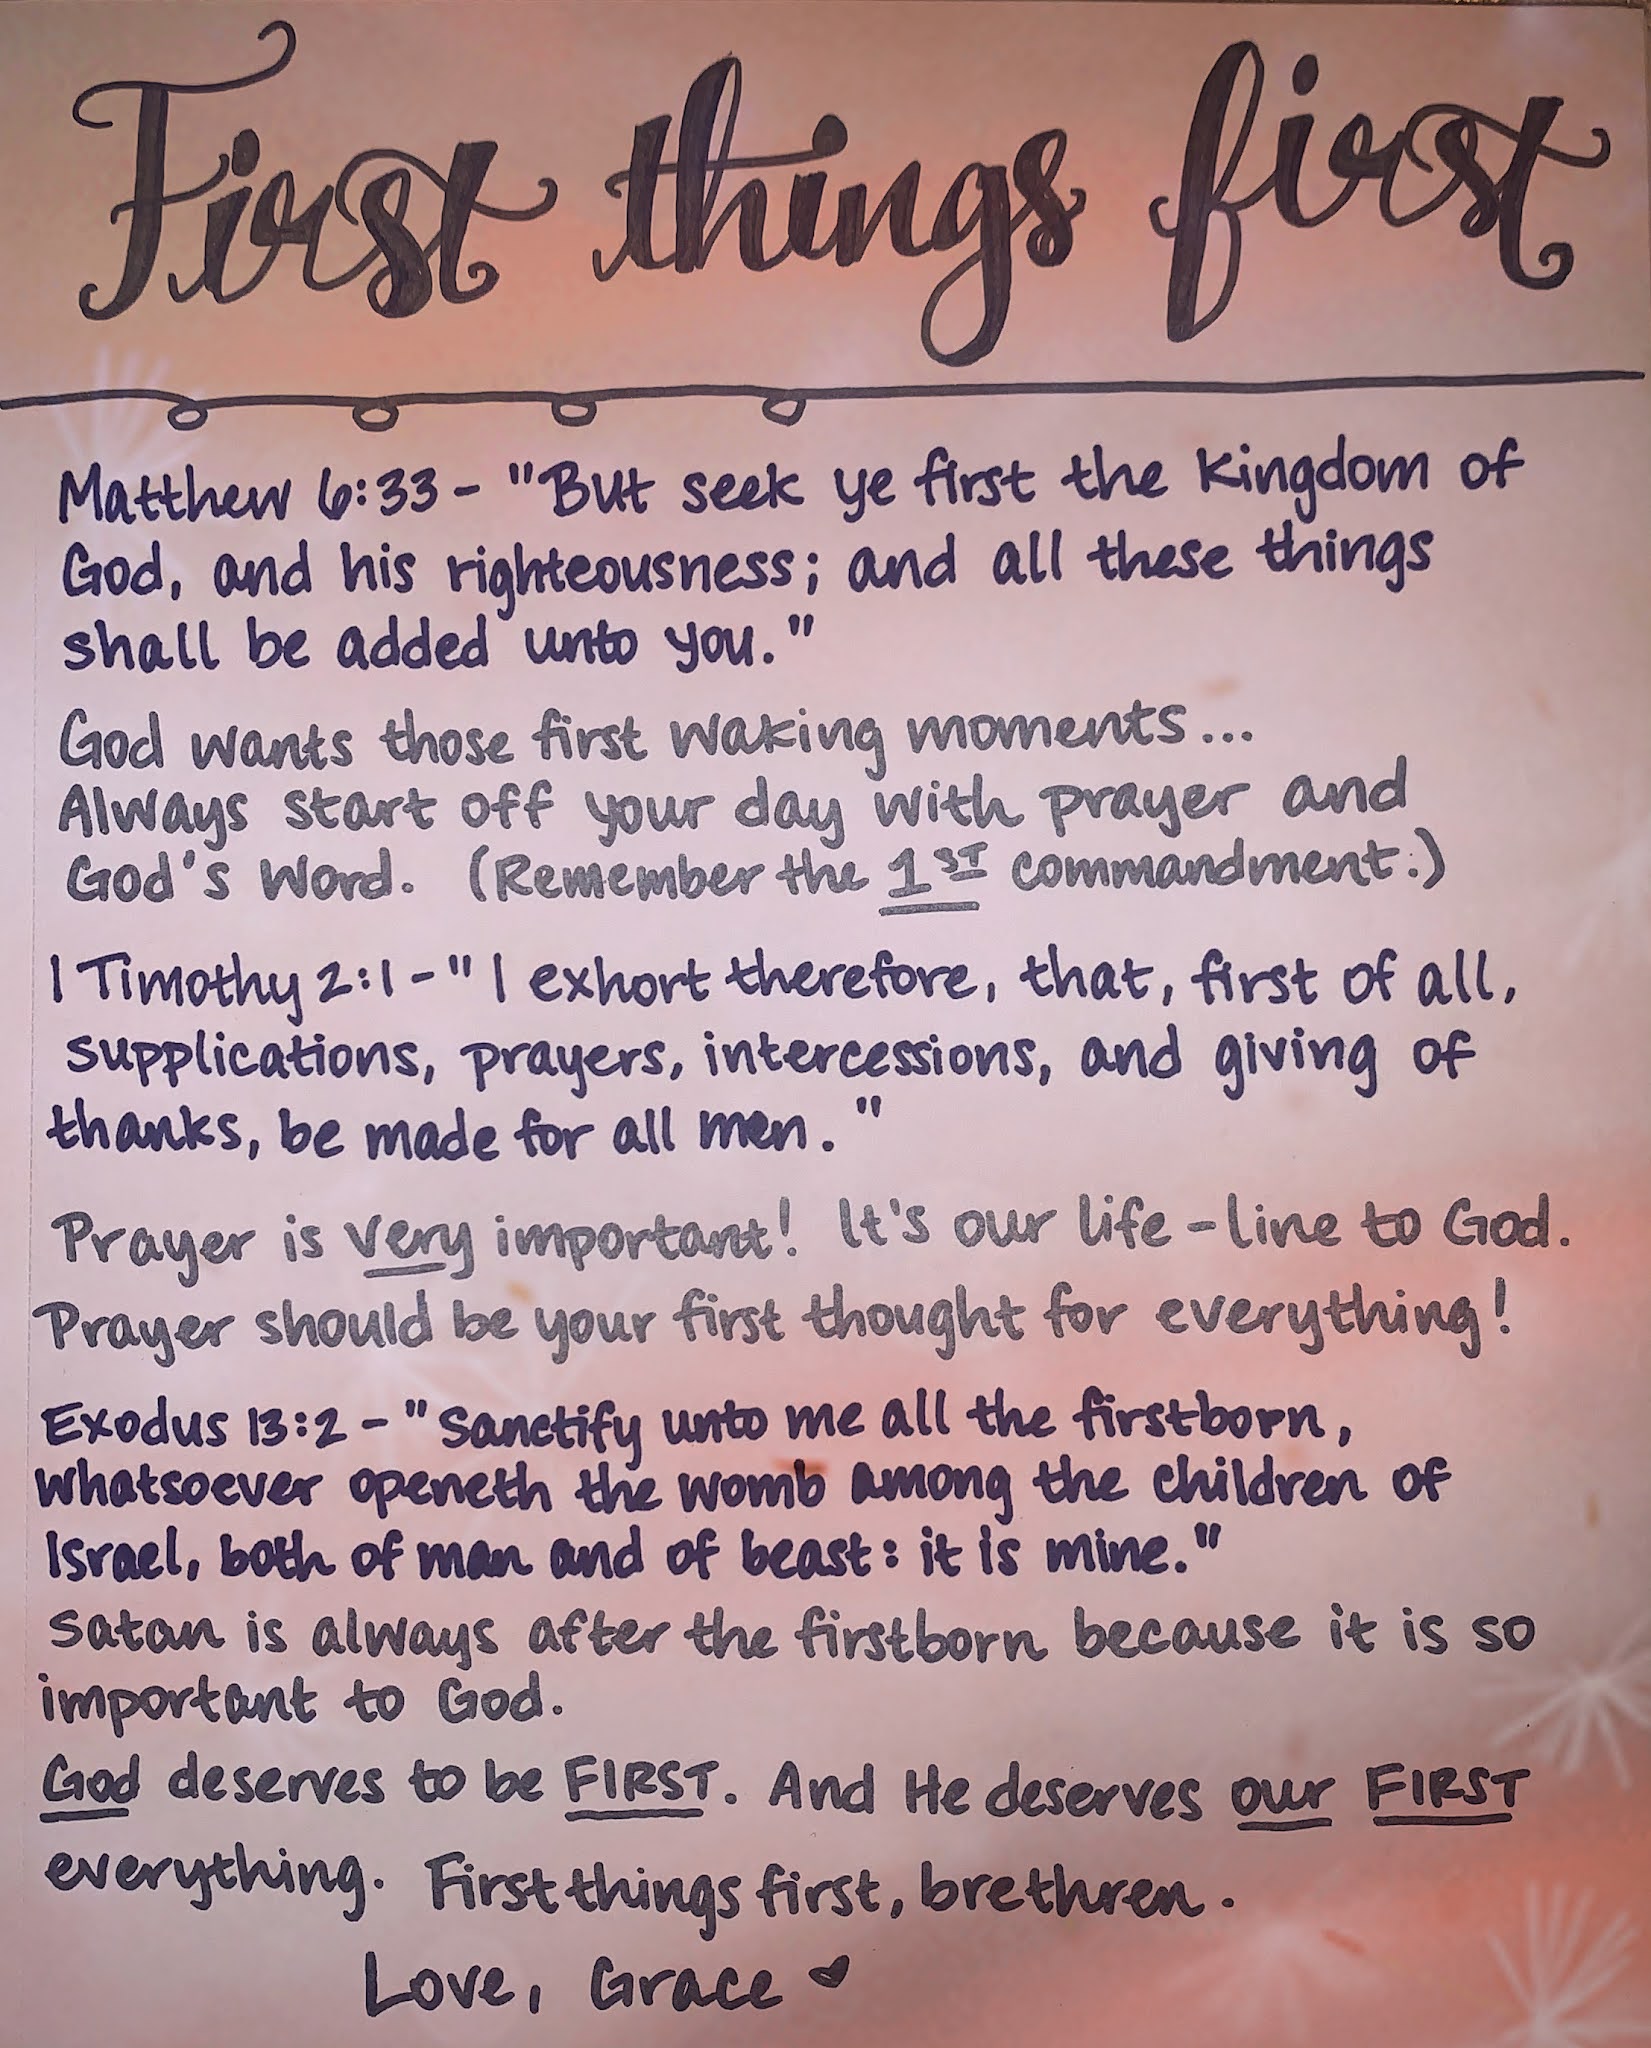 First things first
Matthew 6:33 - "But seek ye first the kingdom of
God, and his righteousness; and all these things
shall be added unto you."
God wants those first waking moments...
Always start off your day with prayer and
God's Word. (Remember the 1ST commandment.)
1 Timothy 2:1 - "I exhort therefore, that, first of all,
supplications, prayers, intercessions, and giving of
thanks, be made for all men."
Prayer is very important! It's our life-line to God.
Prayer should be your first thought for everything!
Exodus 13:2 - "Sanctify unto me all the firstborn,
whatsoever openeth the womb among the children of
Israel, both of man and of beast: it is mine."
Satan is always after the firstborn because it is so
important to God.
God deserves to be FIRST. And He deserves our FIRST
everything. First things first, brethren.
Love, Grace ♥